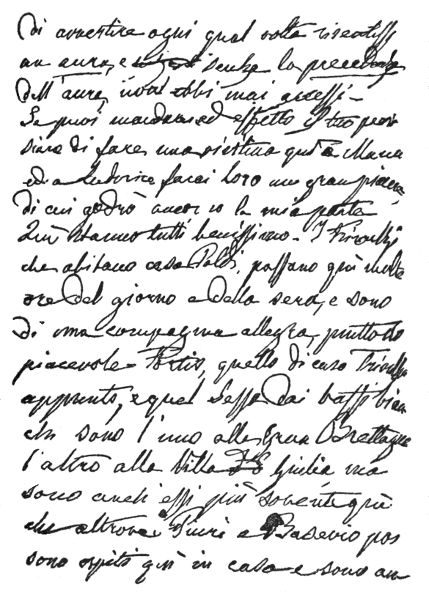 di avvertire ogni qual volta risentissi
un aura, e senza la precedenza
dell'aura, non ebbi mai accessi -
Se puoi mandare ed effetto il tuo pen
siero di fare una visitina qui a Maria
ed a Ludovico farai loro un gran piacere
di cui godrò ancor io la mia parte
Qui stanno tutti benissimo. I Trivulzi
che abitano casa passano qui molte
ore del giorno e della sera, e sono
di una compagnia allegra, piuttosto
piacevole Portis, quello di casa Trivulzi
appunto, e quel dai baffi bian
chi sono l'uno alla Gran Brettagna
l'altro alla Villa Giulia ma
sono anch'essi più sovente qui
che altrove e Basevio pos
sono ospiti qui in casa e sono an